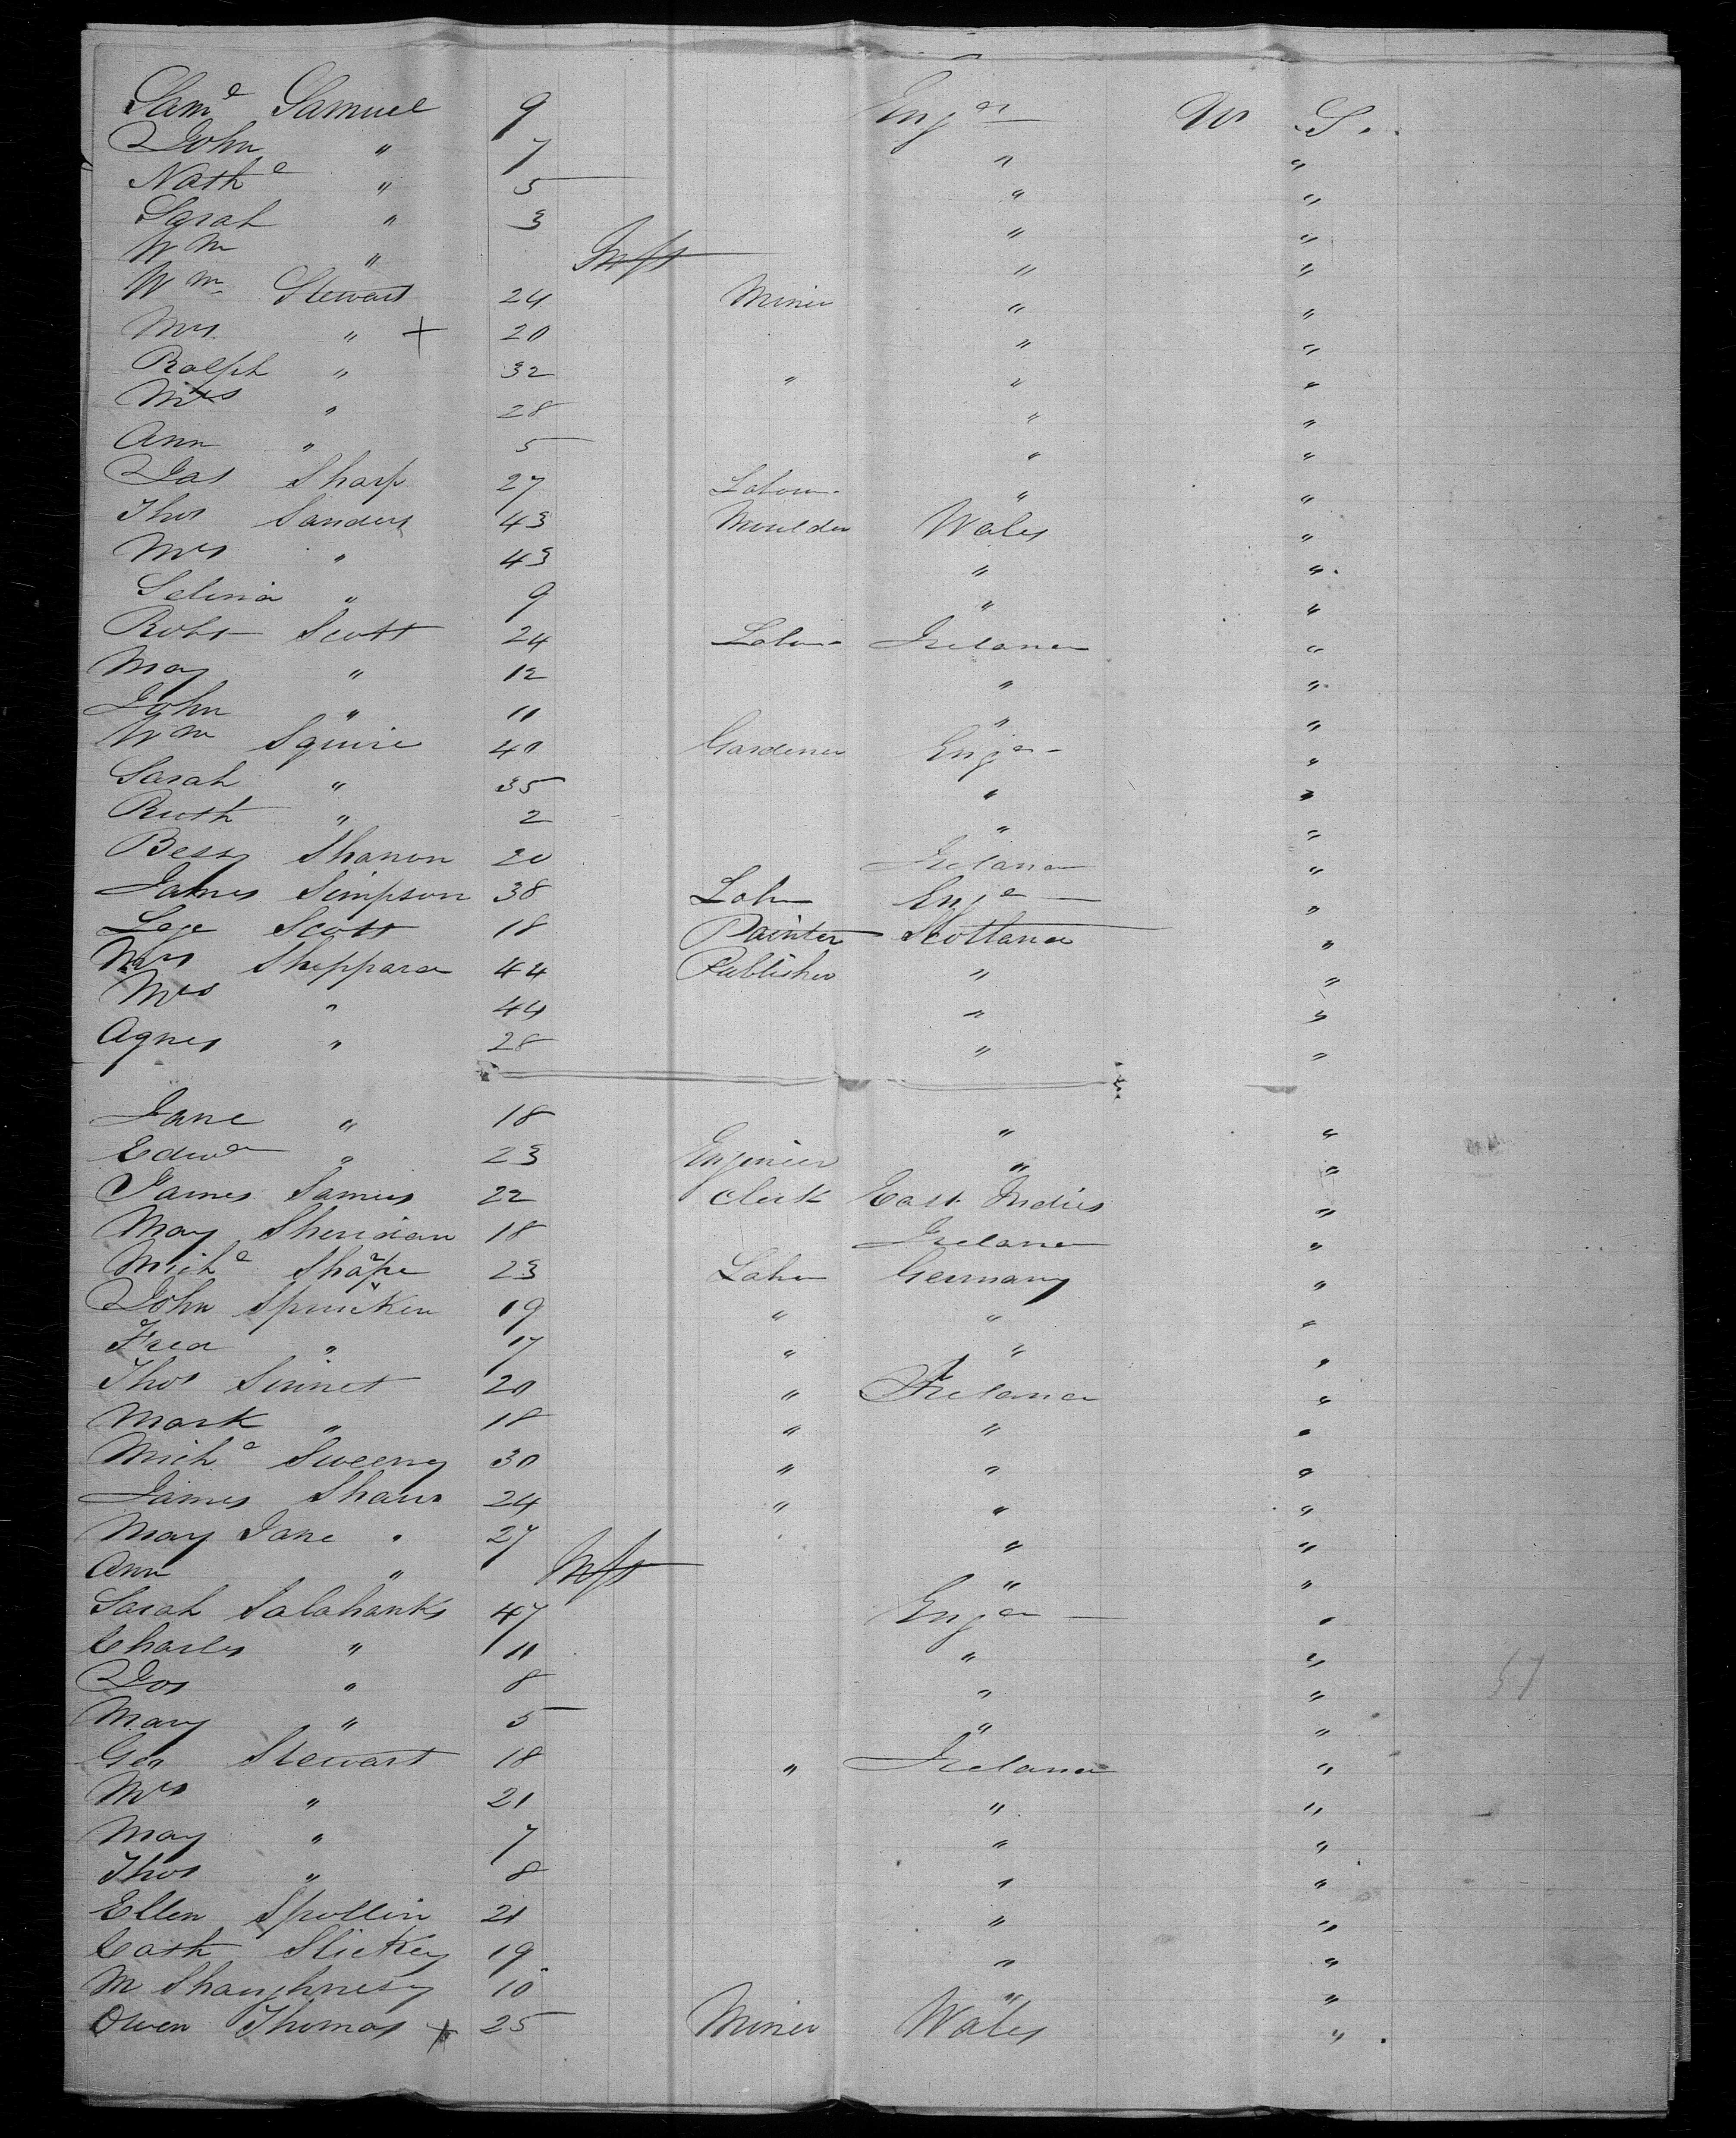 Saml Samuel 9 Engd U S.
John " 7 " "
Nathl " 5 " "
Sarah " 3 " "
Wm " Inft " "
Wm Stewart 24 Miner " "
Mrs " + 20 " "
Ralph " 32 " " "
Mrs " 28 " "
Ann " 5 " "
Jas Sharp 27 Labour " "
Thos Sanders 43 Moulder Wales "
Mrs " 43 " "
Selina " 9 " "
Robt Scott 24 Labr Ireland "
May " 12 " "
John " 11 " "
Wm Squire 40 Gardener Engd "
Sarah " 35 " "
Ruth " 2 " "
Bessy Shanon 20 Ireland "
James Simpson 38 Labr Engd "
Scott 18 Painter Scotland "
Sheppard 44 Publisher " "
Mrs " 44 " "
Agnes " 28 " "
Jane " 18 " "
Edwd " 23 Engineer " "
James 22 Clerk East Indies "
May Sheridan 18 Ireland "
Michl 23 Labr Germany "
John 19 " " "
Fred " 17 " " "
Thos Sinnet 20 " Ireland "
Mark " 18 " " "
Michl Sweeny 30 " " "
James Shaw 24 " " "
May Jane " 27 " "
Ann " Inft " "
Sarah Salabanks 47 Engd "
Charles " 11 " "
Jos " 8 " "
Mary " 5 " "
Geo Stewart 18 " Ireland "
Mrs " 21 " "
May " 7 " "
Thos " 8 " "
Ellen Spollin 21 " "
Cath Slickey 19 " "
M Shaughnesy 10 " "
Owen Thomas + 25 Miner Wales "